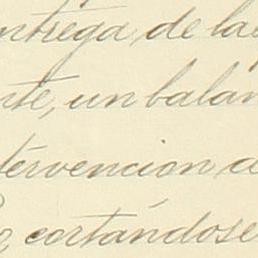 ntrega, de la
nte, un balan
tervencion d
cortándose